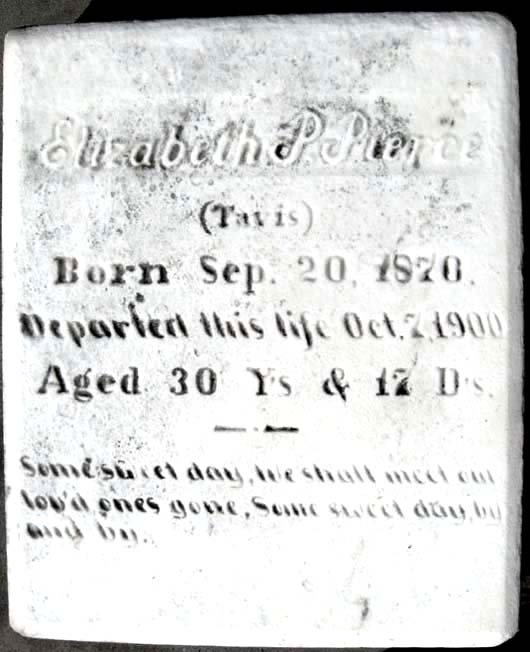 Elizabeth P. Pierce
(Tavis)
Born Sep. 20, 1870.
Departed this life Oct. 7, 1900
Aged 30 Ys & 17 Ds.
Some sweet day, we shall meet our
lov'd ones gone, Some sweet day, by
and by.